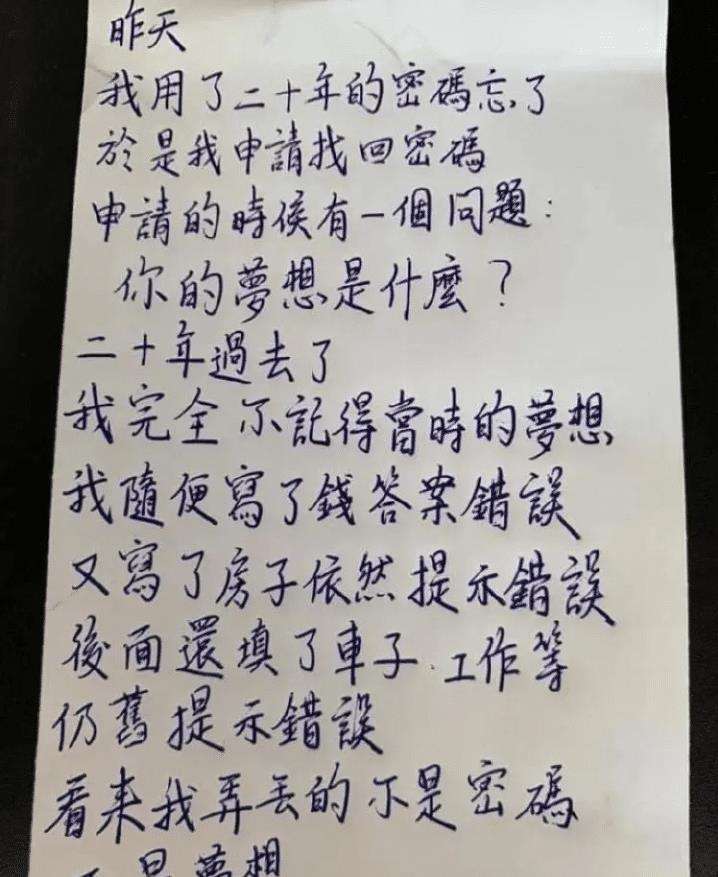 昨天
我用了二十年的密碼忘了
於是我申請找回密碼
申請的時侯有一個問題：
你的夢想是什麼？
二十年過去了
我完全不記得當時的夢想
我隨便寫了錢答案錯誤
又寫了房子依然提示錯誤
後面還填了車子.工作等
仍舊提示錯誤
看来我弄丟的不是密碼
是夢想